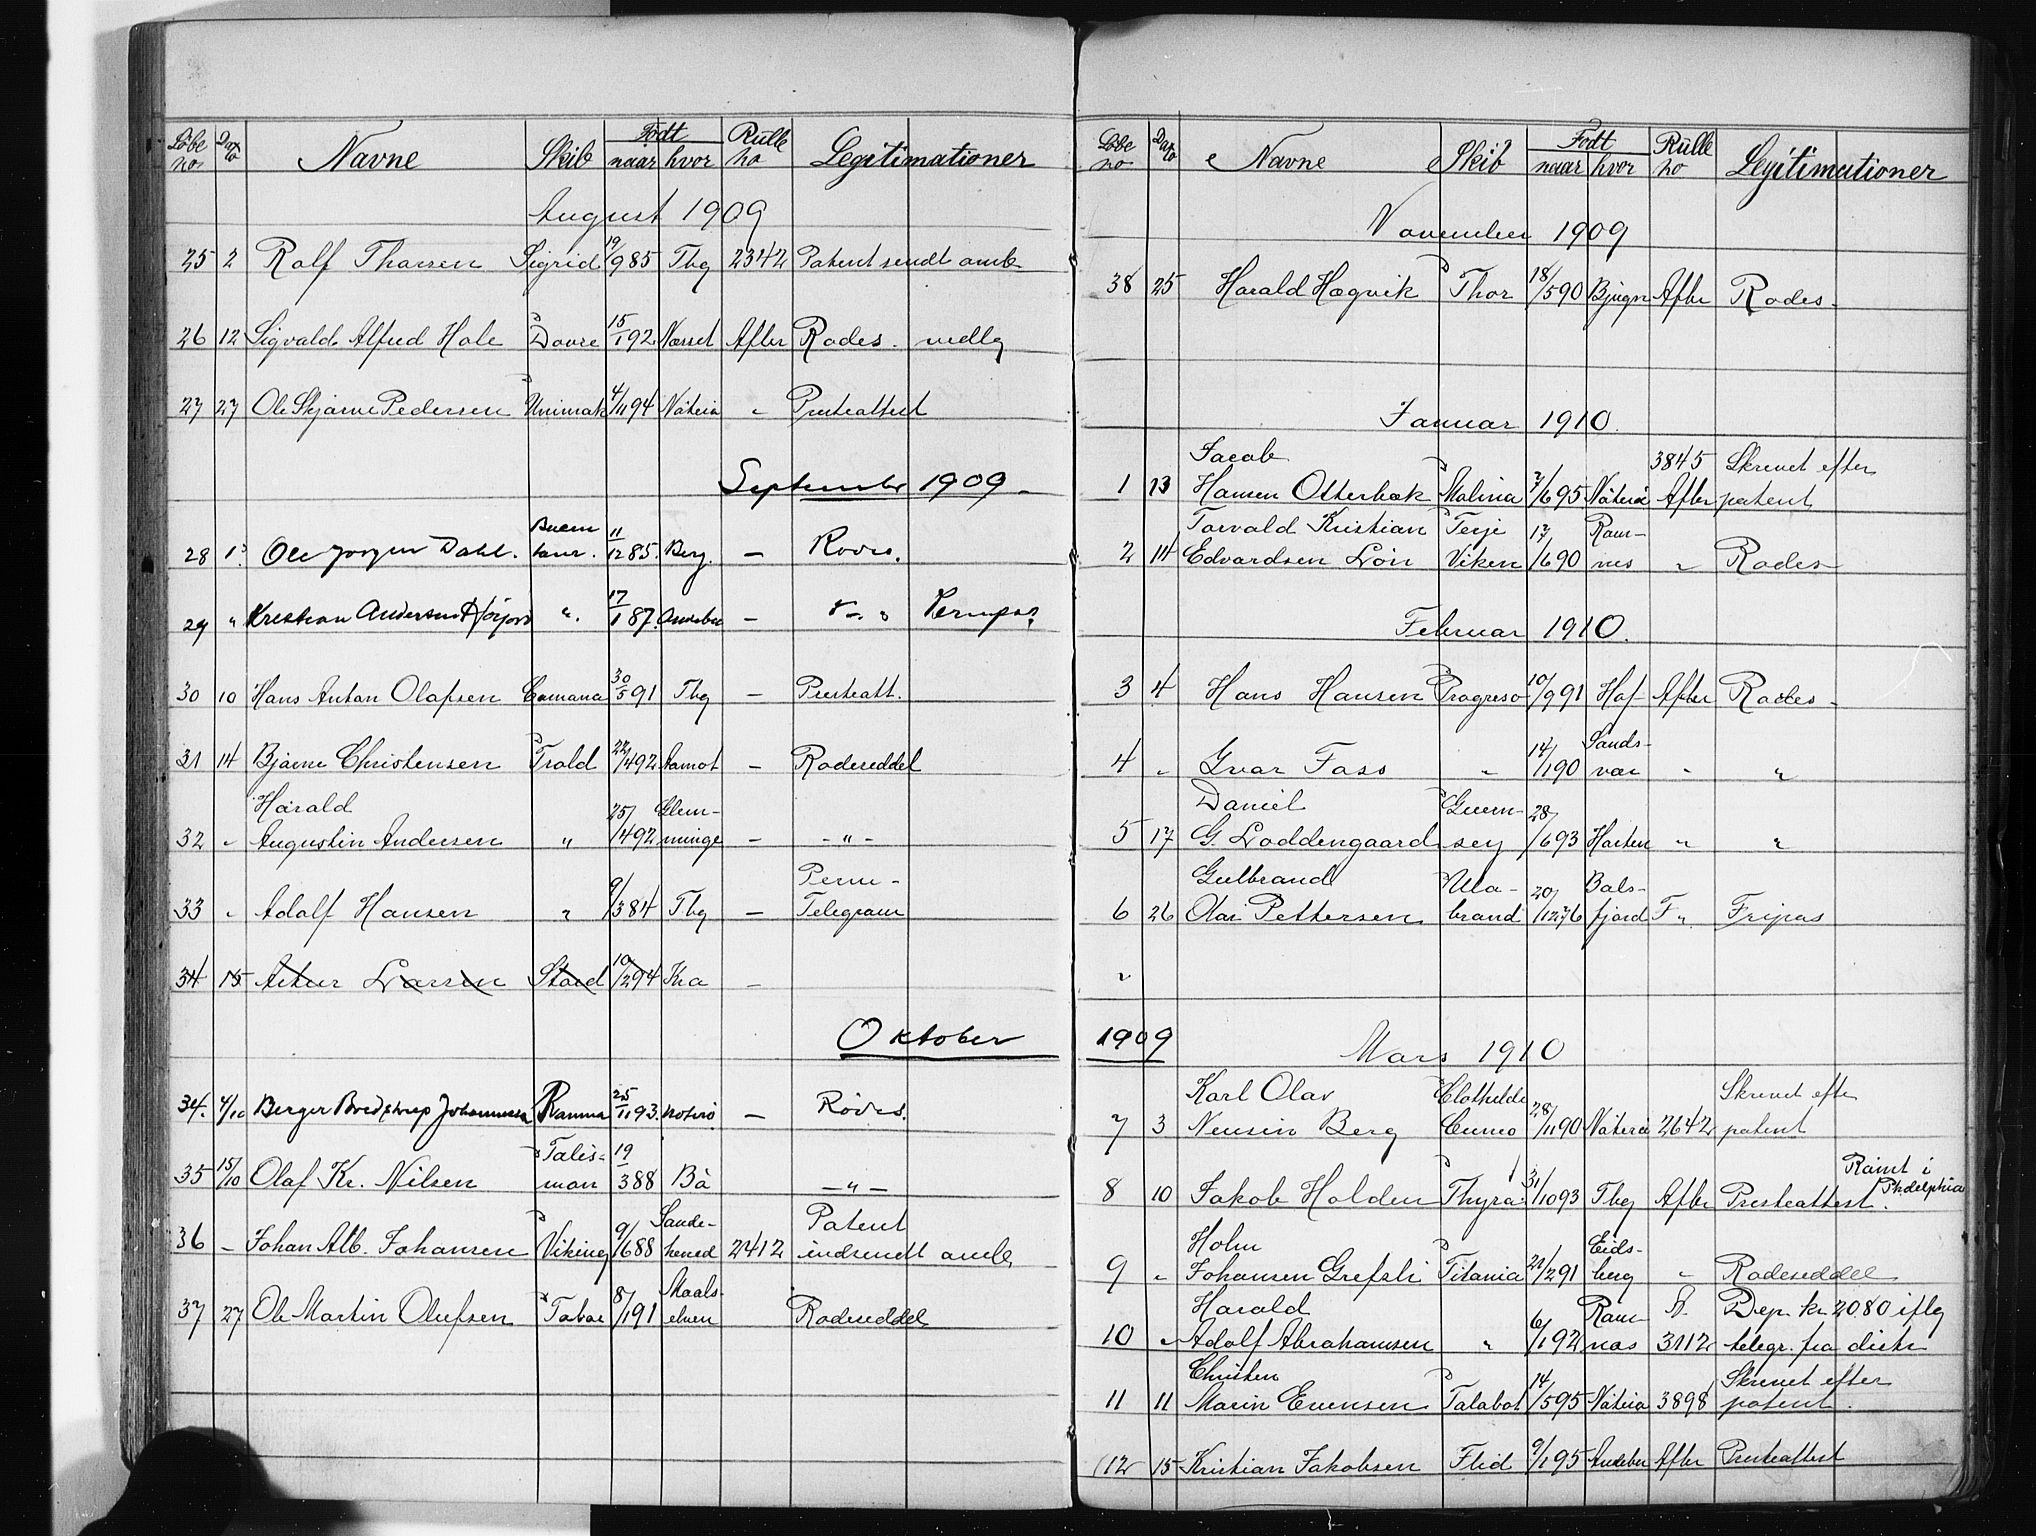 Løbe no Dato Navne Skib Født naar hvor Rulle no Legitimationer
August 1909
25 2 Rolf Thorsen Sigrid 19/9 85 Tbg 2342 Patent sendt amb
26 12 Sigvald Alfred Hole Dovre 15/1 92 Næsset Afbr Rodes. vedlg
27 27 Ole Skjarne Pedersen Unimak 4/11 94 Nøterø " Presteattest
September 1909
28 1 Ole Jørgen Dahl. 11/12 85. Berg. — Rodes.
29 " Kristian Andersen ". 17/1 87. Andebu —
30 10 Hans Anton Olafsen Comana 30/5 91 Tbg — Presteatt.
31 14 Bjarne Christensen Trold 22/4 92 Aamot — Rodeseddel
Harald 25/ Glem-
32 " Augustin Andersen " /4 92 minge — - " -
33 " Adolf Hansen " 9/3 84 Tbg — Telegram
34 15 Artur Larsen Stord 10/2 94 Kra —
Oktober
34. 4/10 Berger Bredstrup Johannessen Ranma 25/11 93. Noterø. — Rodes.
Talis- 19
35 15/10 Olaf Kr. Nilsen man 3 88 Bø - " -
Sande- Patent
36 - Johan Alb. Johansen Viking 9/6 88 hered 2412 indsendt amb
Maals-
37 27 Ole Martin Olufsen Tabor 8/1 91 elven Rodeseddel
Løbe no Dato Navne Skib Født naar hvor Rulle no Legitimationer
November 1909
38 25 Harald Høgvik Thor 18/5 90 Bjugn Afbr Rodes-
Januar 1910.
Jacob 3845 Skrevet efter
1 13 Hansen Otterbæk Malina 7/6 95 Nøterø Afbr patent
Torvald Kristian Terje 17 Ram-
2 14 Edvardsen Løn Viken /6 90 nes " Rodes
Februar 1910.
3 4 Hans Hansen Progreso 10/9 91 Hof Afbr Rodes-
Sands-
4 " Ivar Foss " 14/1 90 vær " "
Daniel Guern- 28
5 17 G. Loddengaard sey /6 93 "  "
Gulbrand Ula- 20 Bals-
6 26 Olai Pettersen brand /12 76 fjord F " Fripas
"
1909 Mars 1910
Karl Olav Clothilde Skrevet efter
7 3 Nensin Berg Cuneo 28/11 90 Nøterø 2642 patent
Rømt i
8 10 Jakob Holden Thyra 31/10 93 Tbg Afbr Presteattest. Phdelphia
Holm Eids-
9 " Johansen Grefsli Titania 22/2 91 berg " Rodeseddel
Harald 6 Ram- A. Dep. kr 20.80 iflg
10 " Adolf Abrahamsen " /1 92 næs 3112 telegr. fra distr
Christen 14 Skrevet efter
11 11 Marin Evensen Talabot /5 95 Nøterø 3898 patent.
12 15 Kristian Jakobsen Flid 9/1 95 Andebu Afbr Presteattest